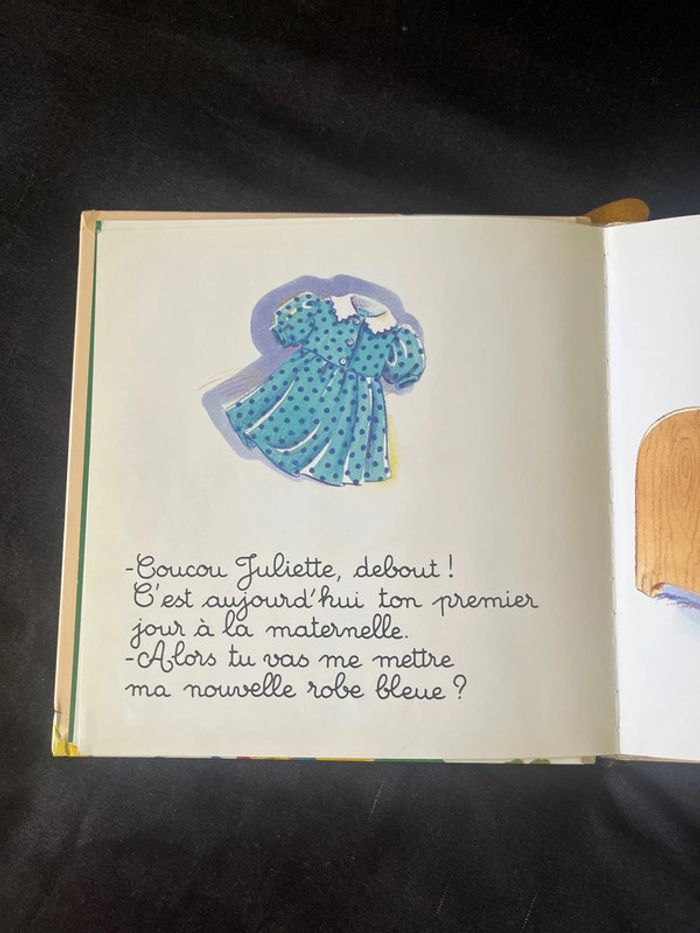 -Coucou Juliette, debout !
C'est aujourd'hui ton premier
jour à la maternelle.
-Alors tu vas me mettre
ma nouvelle robe bleue ?